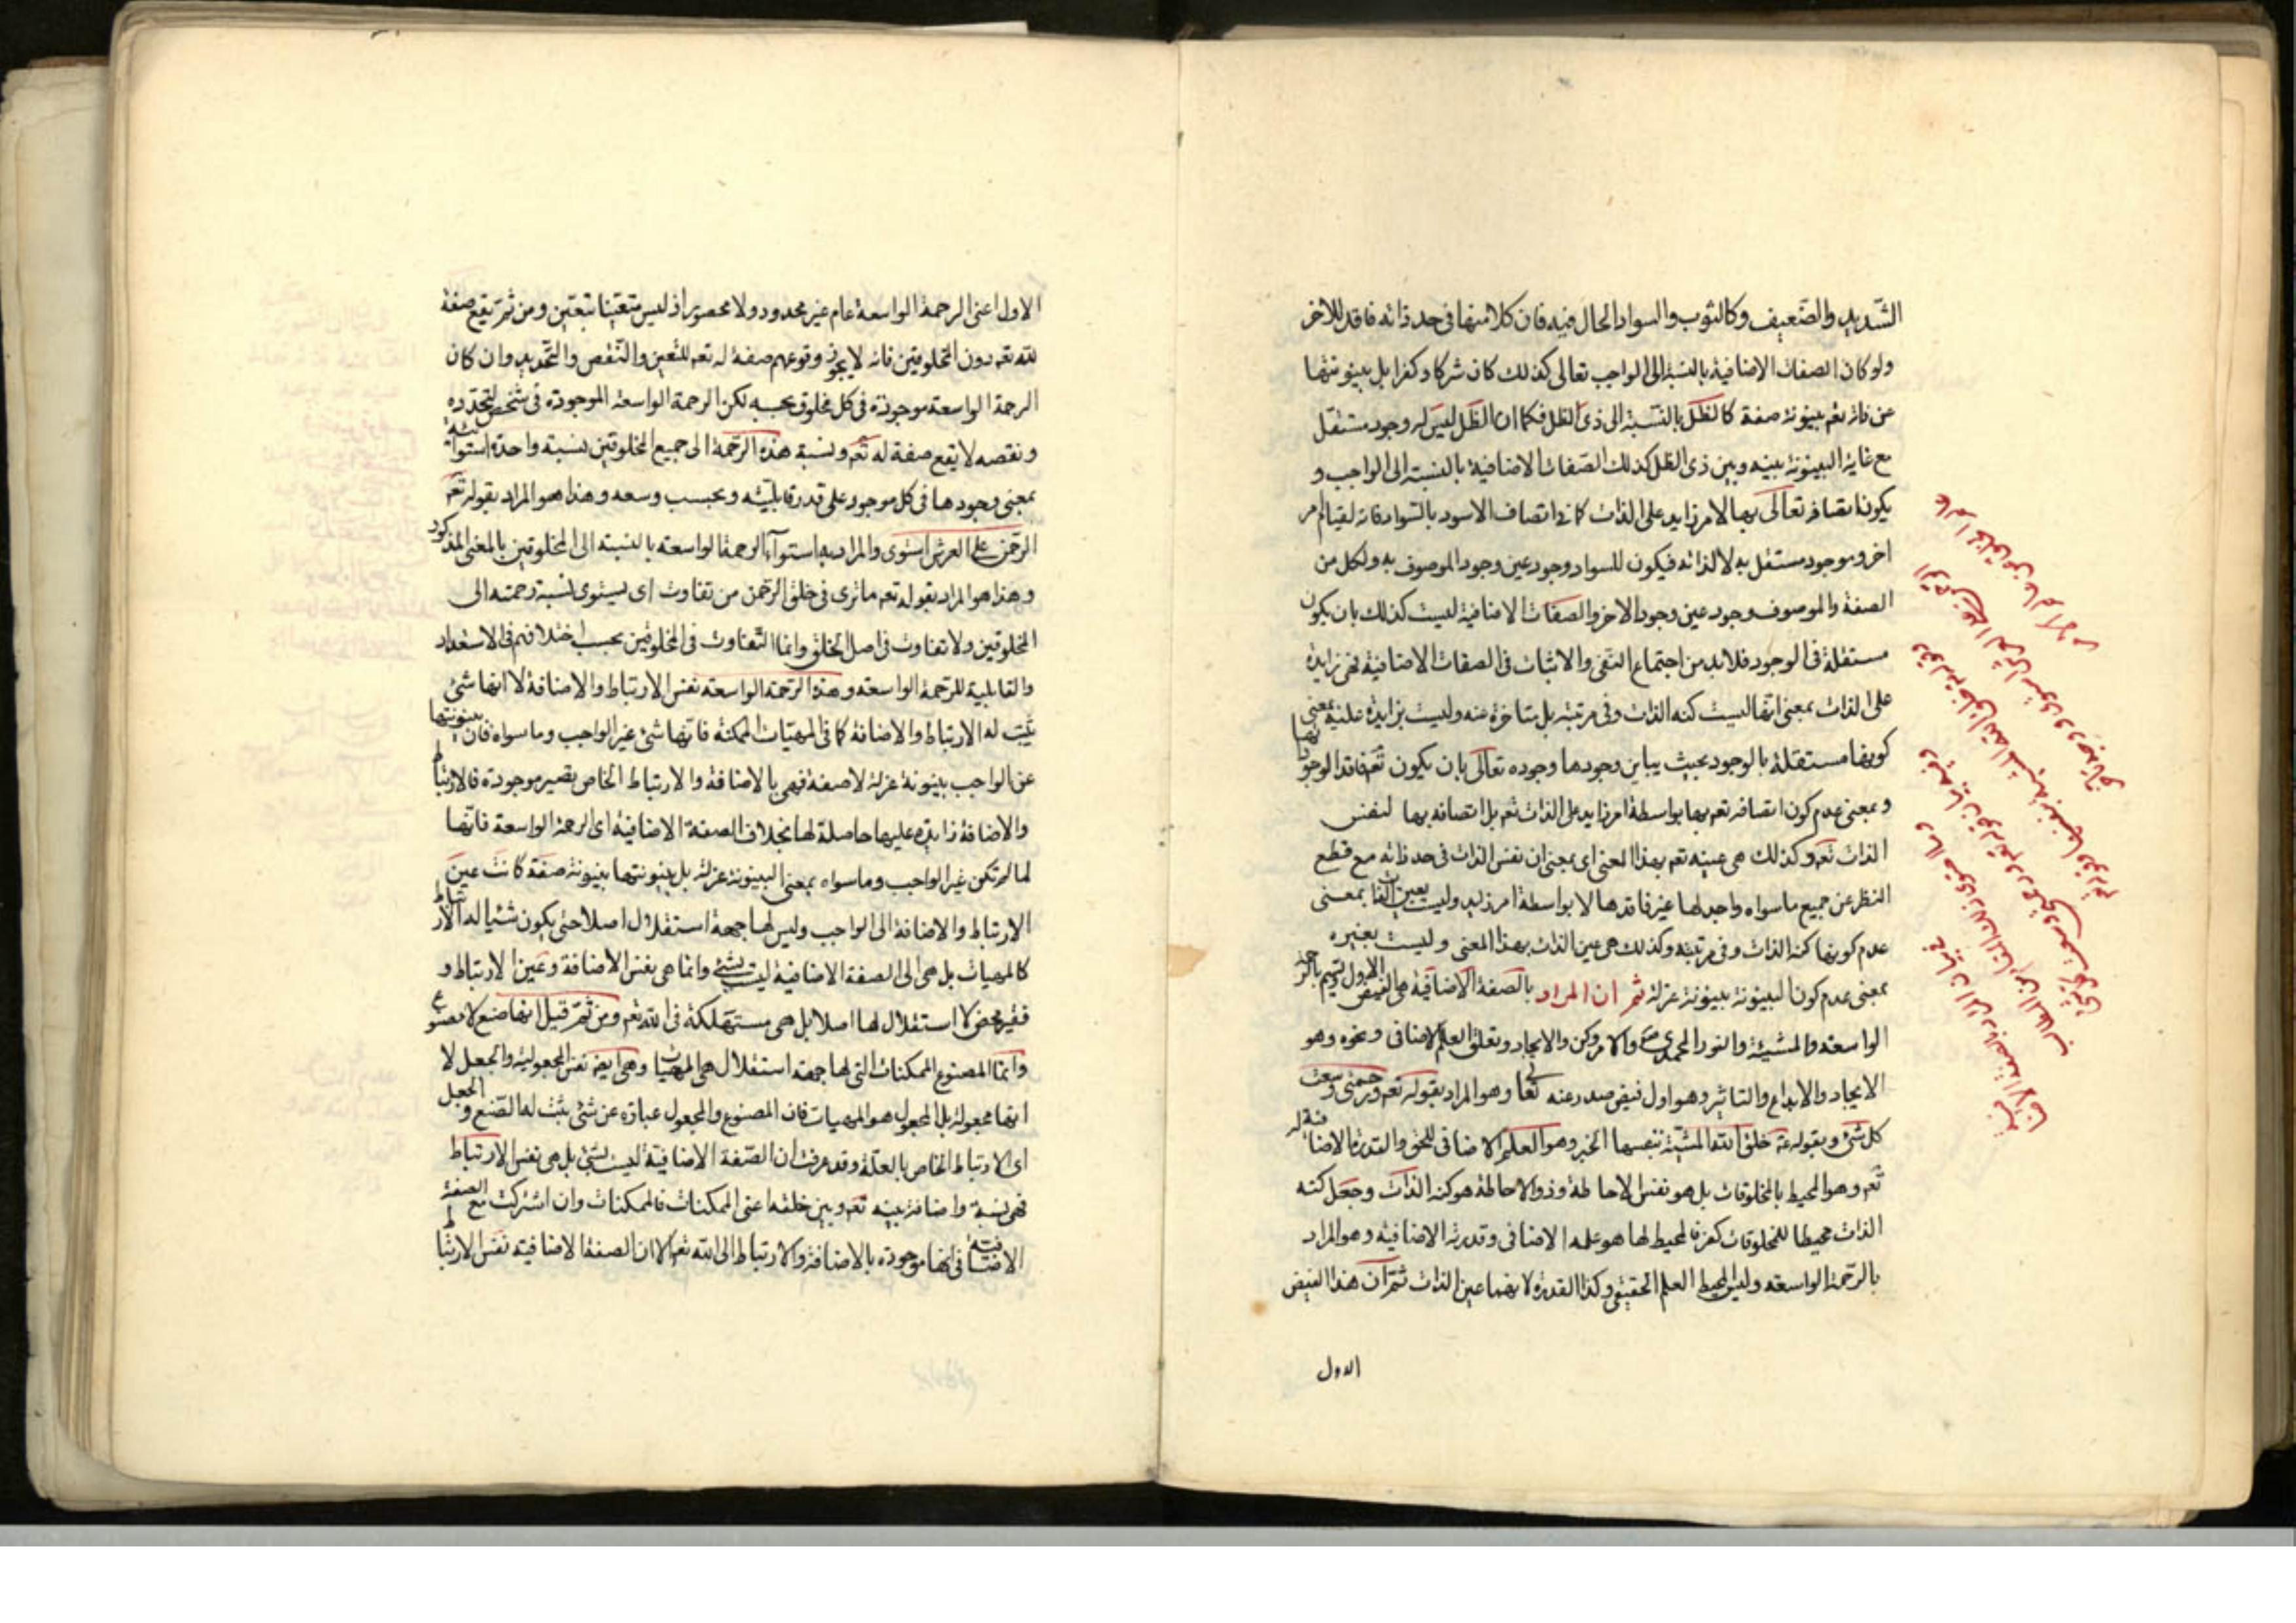 الشديد والضعيف وكالثوب والسواد الحال فيه فان كلا منها فى حد ذاته فاقد للاخر
ولو كان الصفات الاضافية بالنسبة الى الواجب تعالى كذلك كان شركا وكفرا بل بينونتها
عن ذاته تعم بينونة صفة كالظل بالنسبة الى ذى الظل فكما ان الظل ليس له وجود مستقل
مع غاية البينونة بينه وبين ذى الظل كذلك الصفات الاضافية بالنسبة الى الواجب و
يكون اتصافه تعالى بها لا لامر زايد على الذات كما فى اتصاف الاسود بالسواد فانه لقيام امر
اخر وموجود مستقل به لا لذاته فيكون للسواد وجود عين وجود الموصوف به ولكل من
الصفة والموصوف وجود عين وجود الاخر والصفات الاضافية ليست كذلك بان يكون
مستقلة فى الوجود فلابد من اجتماع النفى والاثبات فى الصفات الاضافية فهى زايدة
على الذات بمعنى انها ليست كنه الذات وفى مرتبته بل متاخرة عنه وليست بزايدة عليه بمعنى
كونها مستقلة بالوجود بحيث يباين وجودها وجوده تعالى بان يكون تعم فاقد الوجودها
وبمعنى عدم كون اتصافه تعم بها بواسطة امر زايد على الذات تعم بل اتصافه بها لنفس
الذات تعم وكذلك هى عينه تعم بهذا المعنى اى بمعنى ان نفس الذات فى حد ذاته مع قطع
النظر عن جميع ما سواه واجد لها غير فاقد لها لا بواسطة امر زايد وليست بعين الذات بمعنى
عدم كونها كنه الذات وفى مرتبته وكذلك هى عين الذات بهذا المعنى وليست بغيره
بمعنى عدم كون البينونة بينونة عزلة ثم ان المراد بالصفة الاضافية هى الفيض الاول
الواسعة والمشيئة والنور المحمدى ص والامر وكن والايجاد وتعلق العلم الاضافى ونحوه وهو
الايجاد والابداع والتاثير وهو اول فيض صدر عنه تعالى وهو المراد بقوله تعم ورحمتى وسعت
كل شئ وبقوله ع خلق الله المشية بنفسها الخبر وهو العلم الاضافى للحق والقدرة الاضافية له
تعم وهو المحيط بالمخلوقات بل هو نفس الاحاطة وذو الاحاطة هو كنه الذات وجعل كنه
الذات محيطا للمخلوقات كفر فالمحيط لها هو علمه الاضافى وقدرته الاضافية وهو المراد
بالرحمة الواسعة وليس المحيط العلم الحقيقى وكذا القدرة لانهما عين الذات ثم ان هذا الفيض
الاول
الاول اعنى الرحمة الواسعة عام غير محدود ولا محصور اذ ليس متعينا بتعين ومن ثم يقع صفة
لله تعم دون المخلوقين فانه لا يجوز وقوعهم صفة له تعم للتعين والنقص والتحديد وان كان
الرحمة الواسعة موجودة فى كل مخلوق بحسبه لكن الرحمة الواسعة الموجودة فى شخص لتحدده
ونقصه لا يقع صفة له تعم ونسبة هذه الرحمة الى جميع المخلوقين نسبة واحدة استوائية
بمعنى وجودها فى كل موجود على قدر قابليته وبحسب وسعه وهذا هو المراد بقوله تعم
الرحمن على العرش استوى والمراد به استواء الرحمة الواسعة بالنسبة الى المخلوقين بالمعنى المذكور
وهذا هو المراد بقوله تعم ما ترى فى خلق الرحمن من تفاوت اى يستوى نسبة رحمته الى
المخلوقين ولا تفاوت فى اصل الخلق وانما التفاوت فى المخلوقين بحسب اختلافهم فى الاستعداد
والقابلية للرحمة الواسعة وهذه الرحمة الواسعة نفس الارتباط والاضافة لا انها شئ
يثبت له الارتباط والاضافة كما فى المهيات الممكنة فانها شئ غير الواجب وما سواه فان بينونتها
عن الواجب بينونة عزلة لا صفة فهى بالاضافة والارتباط الخاص يصير موجودة فالارتباط
والاضافة زايدة عليها حاصلة لها بخلاف الصفة الاضافية اى الرحمة الواسعة فانها
لما لم تكن غير الواجب وما سواه بمعنى البينونة عزلة بل بينونتها بينونة صفة كانت عين
الارتباط والاضافة الى الواجب وليس لها جهة استقلال اصلا حتى يكون شيئا له الارتباط
كالمهيات بل هى الى الصفة الاضافية ليست بشئ وانما هى نفس الاضافة وعين الارتباط و
فقير محض لا استقلال لها اصلا بل هى مستهلكة فى الله تعم ومن ثم قيل انها صنع لا مصنوع
وانما المصنوع الممكنات التى لها جهة استقلال هى المهيات وهى ايضا نفس المجعولية والجعل لا
انها مجعولة بل المجعول هو المهيات فان المصنوع والمجعول عبارة عن شئ يثبت له الصنع والجعل
اى الارتباط الخاص بالعلة وقد عرفت ان الصفة الاضافية ليست بشئ بل هى نفس الارتباط
فهى نسبة واضافة بينه تعم وبين خلقه اعنى الممكنات فالممكنات وان اشتركت مع الصفة
الاضافية فى انها موجودة بالاضافة والارتباط الى الله تعم الا ان الصفة الاضافية نفس الارتباط